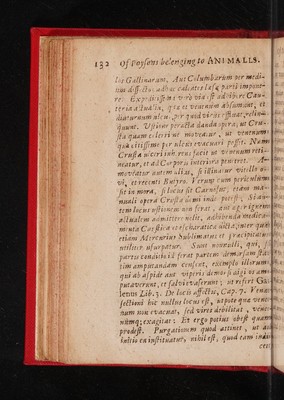 132 Of Poysons belonging to ANIMALLS.
los Gallinarum, Aut Columbarum per medi-
um dissectus adhuc calentes læsæ parti impone-
re: Expeditissima vero via est adhibere Cau-
teria actualia, quæ et venenum absumant, et
diuturnum ulcus, per quod virus effluat, relin-
quunt. Ustione peracta danda opera, ut Cru-
sta quam celeri ut moveatur, ut venenum
quà citissime per ulcus evacuari possit. Nam
Crusta ulceri inherens facit ut venenum reti-
neatur, et ad Corporis interiora penetret. A-
moveatur autem illa, si illinatur vitello o-
vi, et recenti Butyro. Verum cum periculum
sit in mora, si locus sit Carnosus, etiam ma-
nuali opera Crusta dimi nui potest, Si au-
tem locus ustionem non ferat, aut æger ignem
actualem admittere nolit, adhibenda medica-
menta Caustica et escharotica dicta, inter quæ
etiam Mercurius sublimatus et præcipitatus
utiliter usurpatur. Sunt nonnulli, qui, si
partis conditio id ferat partem demorsam sta-
tim amputandam censent, exemplo illorum,
qui ab aspide aut vipera demorsi digitos am-
putaverunt, et salvi evaserunt; ut refert Gal-
lenus Lib. 3. De locis affectis, Cap. 7. Venæ
sectioni hic nullus locus est, utpote quæ vene-
num non evacuat, sed vires debilitat, vene-
numq; exagitat; Et ergo potius obest quam
prodest. Purgationem quod attinet, ut ab
initio ea instituatur, nihil est, quod eam indi-
cet;